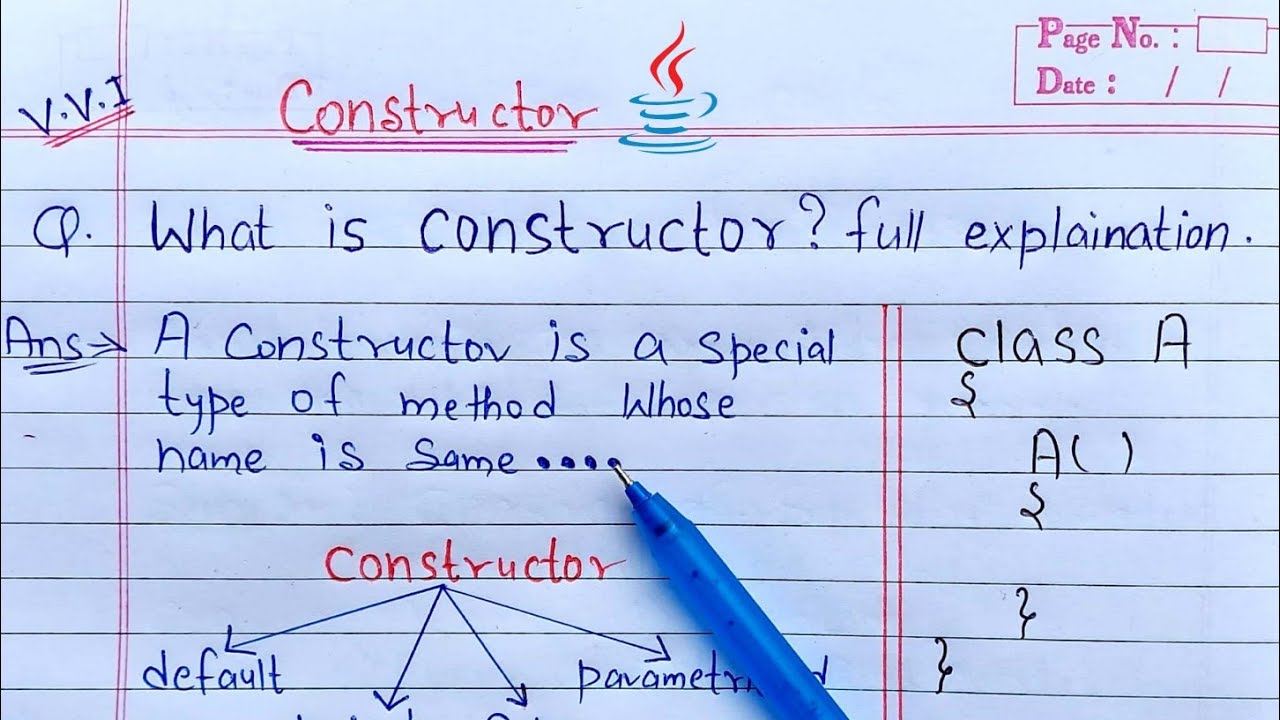 Page No. :
Date : / /
V.V.I
Constructor
Q. What is constructor? full explaination.
Ans→ A Constructor is a special
type of method whose
name is same....
class A
{
A( )
{
}
}
Constructor
default